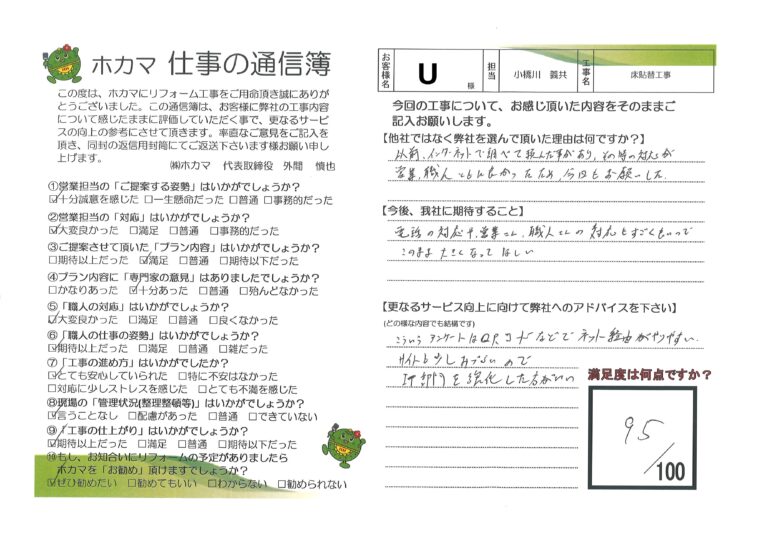 ホカマ 仕事の通信簿
この度は、ホカマにリフォーム工事をご用命頂き誠にありが
とうございました。この通信簿は、お客様に弊社の工事内容
について感じたままに評価していただく事で、更なるサービ
スの向上の参考にさせて頂きます。率直なご意見をご記入を
頂き、同封の返信用封筒にてご返送下さいます様お願い申し
上げます。
㈱ホカマ 代表取締役 外間 慎也
①営業担当の「ご提案する姿勢」はいかがでしょうか？
☑十分誠意を感じた □一生懸命だった □普通 □事務的だった
②営業担当の「対応」はいかがでしょうか？
☑大変良かった □満足 □普通 □事務的だった
③ご提案させて頂いた「プラン内容」はいかがでしょうか？
□期待以上だった ☑満足 □普通 □期待以下だった
④プラン内容に「専門家の意見」はありましたでしょうか？
□かなりあった ☑十分あった □普通 □殆んどなかった
⑤「職人の対応」はいかがでしょうか？
☑大変良かった □満足 □普通 □良くなかった
⑥「職人の仕事の姿勢」はいかがでしょうか？
☑期待以上だった □満足 □普通 □雑だった
⑦「工事の進め方」はいかがでしたか？
☑とても安心していられた □特に不安はなかった
□対応に少しストレスを感じた □とても不満を感じた
⑧現場の「管理状況(整理整頓等)」はいかがでしょうか？
☑言うことなし □配慮があった □普通 □できていない
⑨「工事の仕上がり」はいかがでしょうか？
☑期待以上だった □満足 □普通 □期待以下だった
⑩もし、お知合いにリフォームの予定がありましたら
ホカマを「お勧め」頂けますでしょうか？
☑ぜひ勧めたい □勧めてもいい □わからない □勧められない
お客様名 U 様 担当 小橋川 義共 工事名 床貼替工事
今回の工事について、お感じ頂いた内容をそのままご
記入お願いします。
【他社ではなく弊社を選んで頂いた理由は何ですか？】
以前、インターネットで調べて頼んだ事があり、その時の対応が
営業、職人ともに良かったため、今回もお願いした.
【今後、我社に期待すること】
電話の対応や、営業さん、職人さんの対応もすごくもいので
このまま大きくなってほしい
【更なるサービス向上に向けて弊社へのアドバイスを下さい】
(どの様な内容でも結構です)
こういうアンケートはQRコードなどでネット経由がやりやすい.
サイトも少しみづらいので
IT部門を強化した方がいい
満足度は何点ですか？
95/100